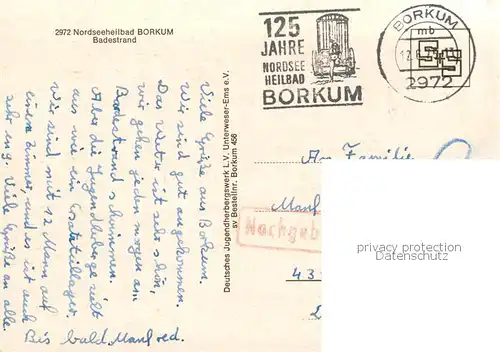 2972 Nordseeheilbad BORKUM
Badestrand
125
JAHRE
NORDSEE
HEILBAD
BORKUM
BORKUM
mb
2972
Viele Grüße aus Borkum.
Wir sind gut angekommen.
Das Wetter ist sehr schön,
wir gehen jeden morgen am
Badestrand schwimmen.
Aber die Jugendherberge sieht
aus wie ein Ersatzteillager.
Wir sind mit 12 Mann auf
einem Zimmer, und es ist auch
sehr eng. Viele Grüße an alle.
Bis bald. Manfred.
Deutsches Jugendherbergswerk L.V. Unterweser-Ems e.V.
sv Bestellnr. Borkum 456
An Familie
Manf
Nachgeb
43
privacy protection
Datenschutz